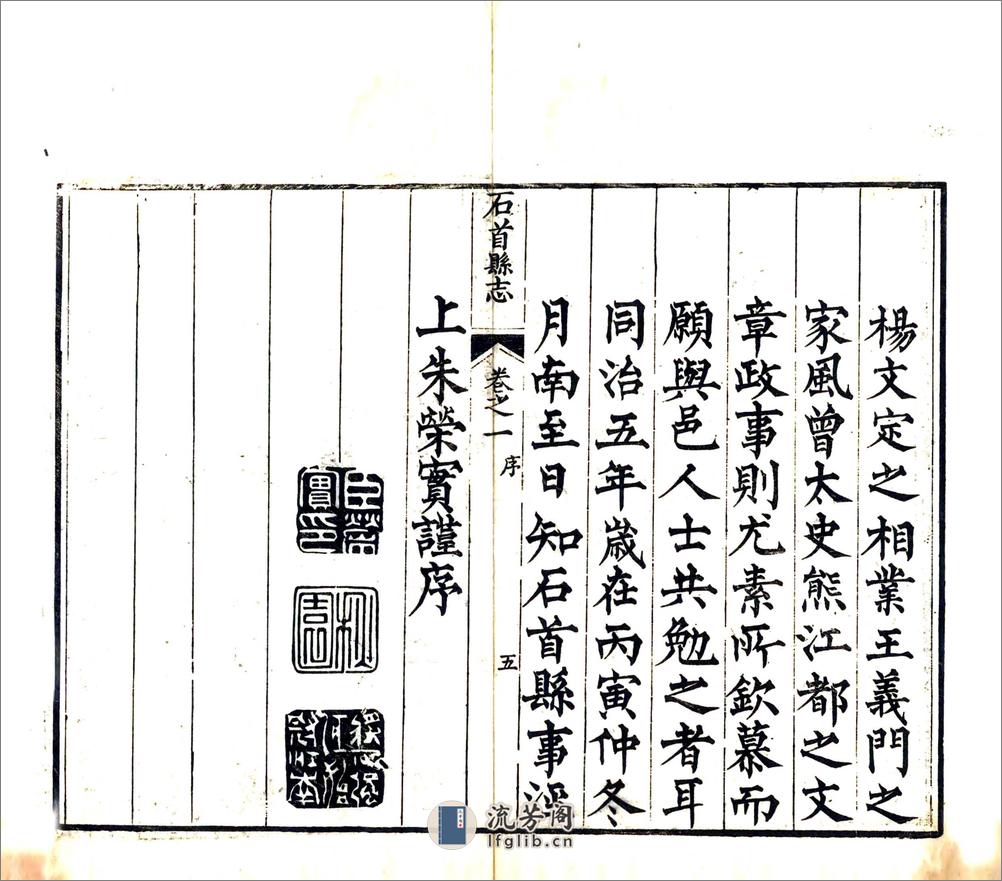 楊文定之相業王義門之
家風曾太史熊江都之文
章政事則尤素所欽慕而
願與邑人士共勉之者耳
同治五年歲在丙寅仲冬
月南至日知石首縣事涇
石首縣志
卷之一
序
五
上朱榮實謹序
流芳阁
lfglib.cn